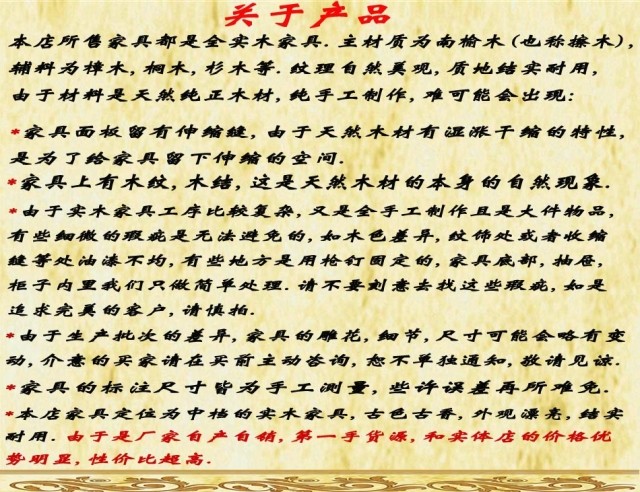 关于产品
本店所售家具都是全实木家具.主材质为南榆木(也称擦木),
辅料为樟木,桐木,杉木等.纹理自然美观,质地结实耐用,
由于材料是天然纯正木材,纯手工制作,难可能会出现:
*家具面板留有伸缩缝,由于天然木材有湿涨干缩的特性,
是为了给家具留下伸缩的空间.
*家具上有木纹,木结,这是天然木材的本身的自然现象.
*由于实木家具工序比较复杂,又是全手工制作且是大件物品,
有些细微的瑕疵是无法避免的,如木色差异,纹饰处或者收缩
缝等处油漆不均,有些地方是用枪钉固定的,家具底部,抽屉,
柜子内里我们只做简单处理.请不要刻意去找这些瑕疵,如是
追求完美的客户,请慎拍.
*由于生产批次的差异,家具的雕花,细节,尺寸可能会略有变
动,介意的买家请在买前主动咨询,恕不单独通知,敬请见谅.
*家具的标注尺寸皆为手工测量,些许误差再所难免.
*本店家具定位为中档的实木家具,古色古香,外观漂亮,结实
耐用.由于是厂家自产自销,第一手货源,和实体店的价格优
势明显,性价比超高.